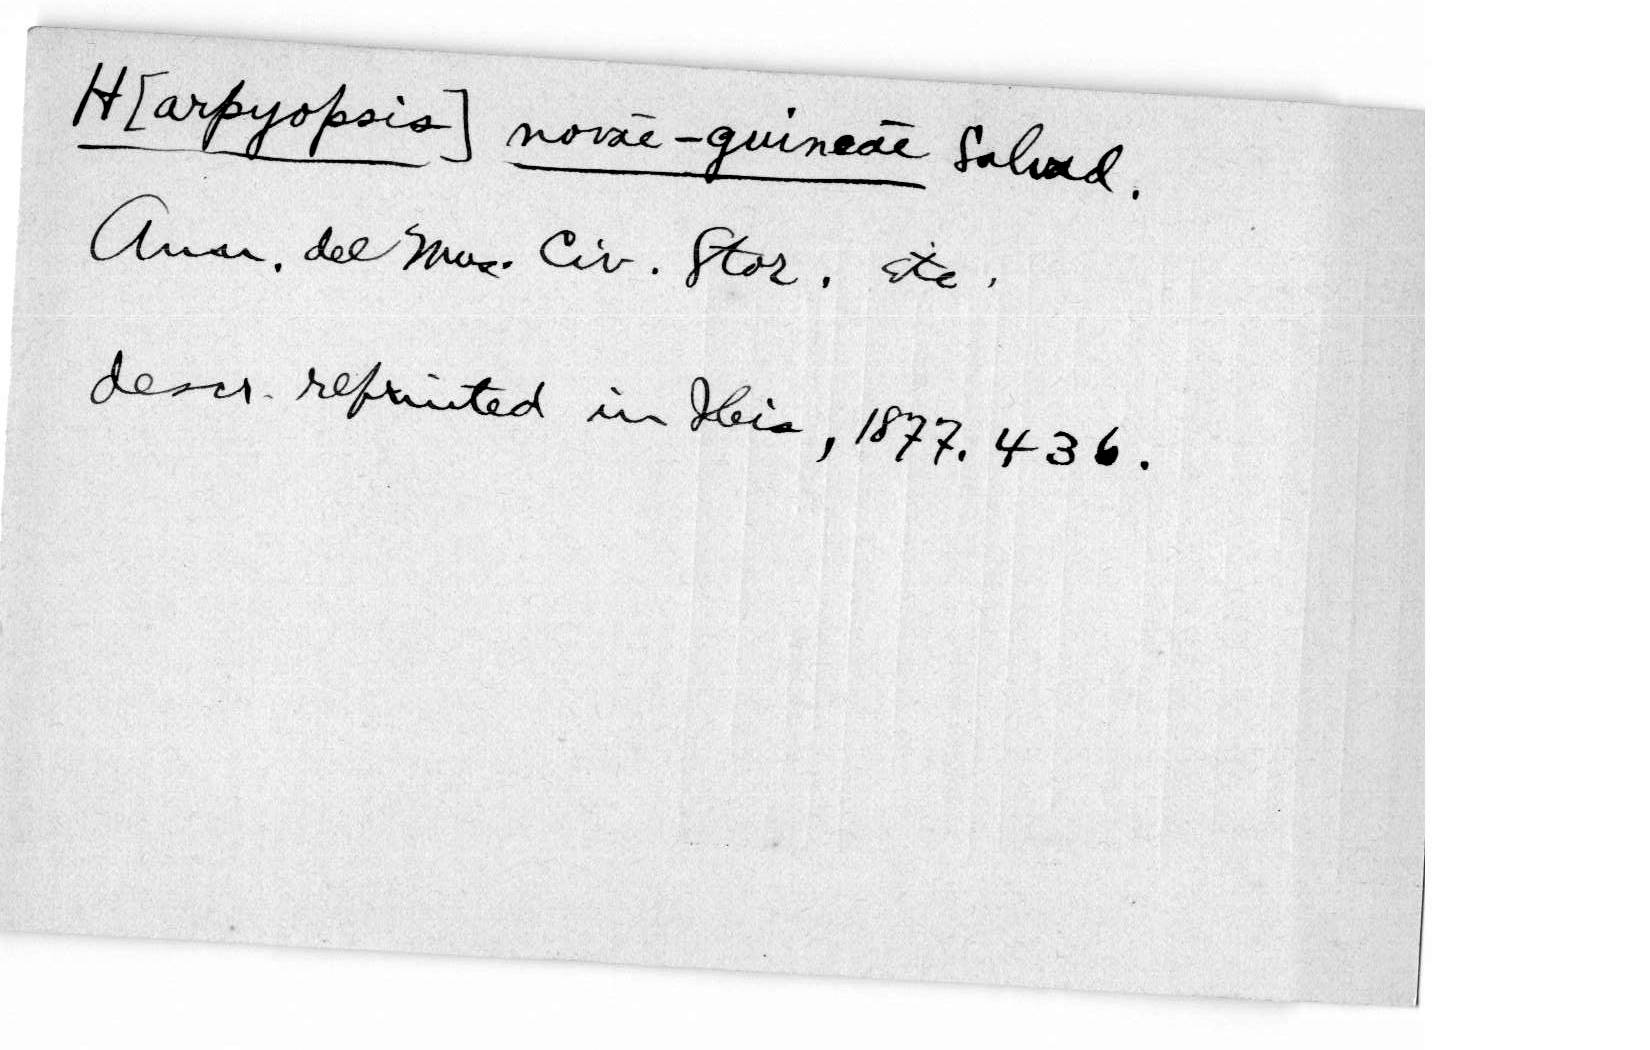 H[arpyopsis] novae-guineae Salvad.
Ann. del Mus. Civ. Stor. etc.
descr. reprinted in Ibis, 1877. 436.